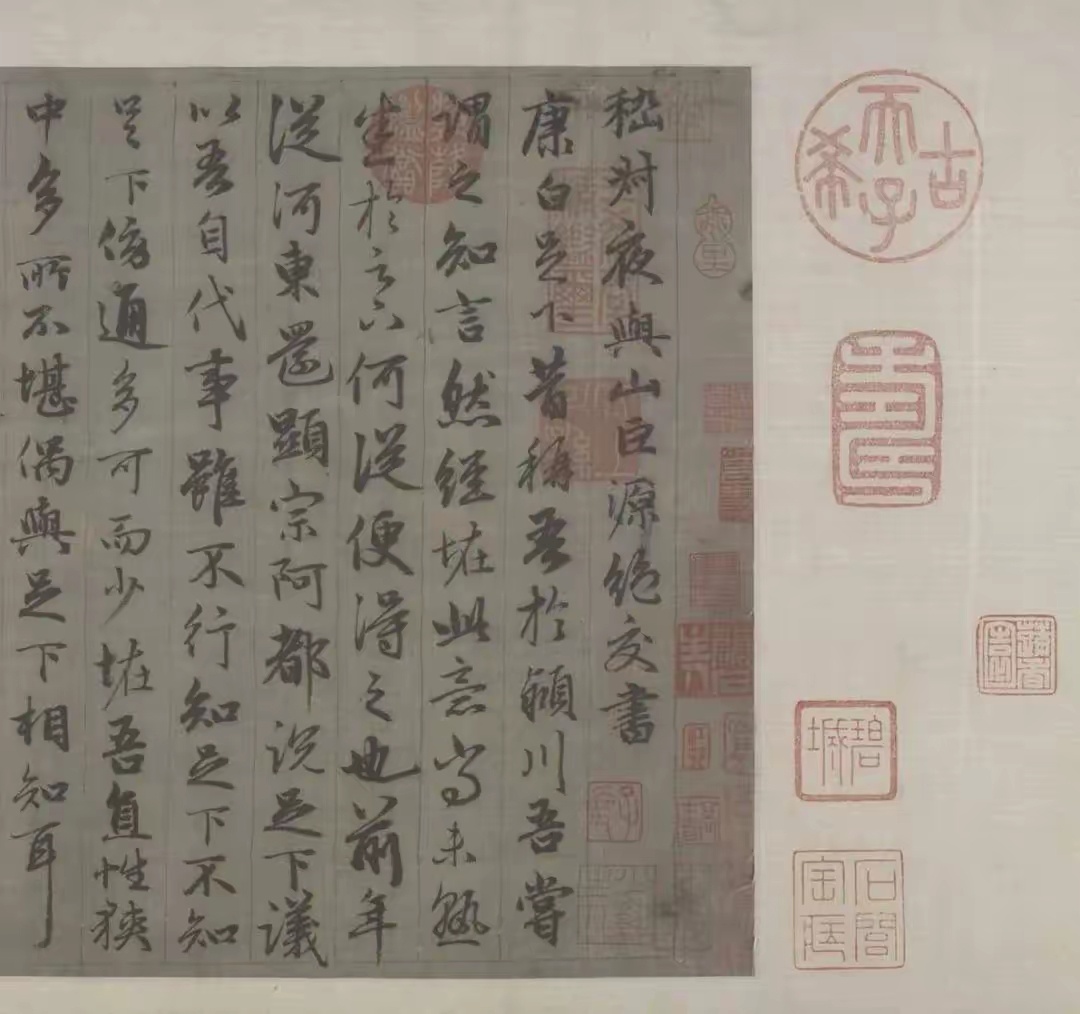 古希天子
壽
嵇叔夜與山巨源絕交書
康白足下昔稱吾於潁川吾嘗
謂之知言然經怪此意尚未熟
悉於足下何從便得之也前年
從河東還顯宗阿都說足下議
以吾自代事雖不行知足下不知
足下傍通多可而少怪吾直性狹
中多所不堪偶與足下相知耳